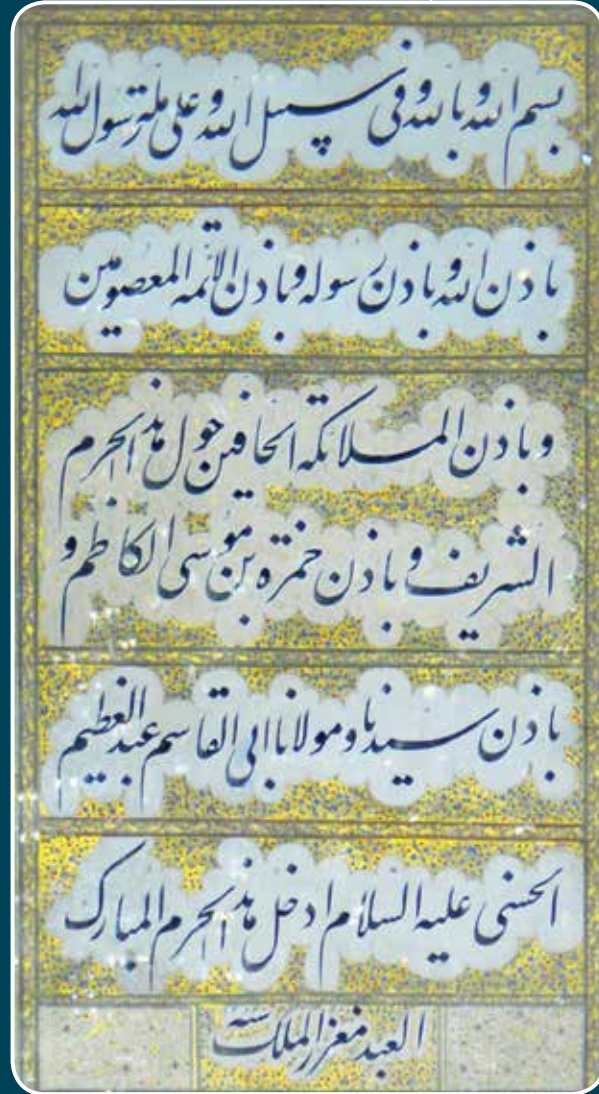 بسم الله و بالله و فی سبیل الله و علی ملة رسول الله
باذن الله و باذن رسوله و باذن الائمه المعصومین
و باذن الملائکة الحافین حول هذا الحرم
الشریف و باذن حمزه بن موسی الکاظم و
باذن سیدنا و مولانا ابی القاسم عبد العظیم
الحسنی علیه السلام ادخل هذا الحرم المبارک
العبد معز الملک سنه